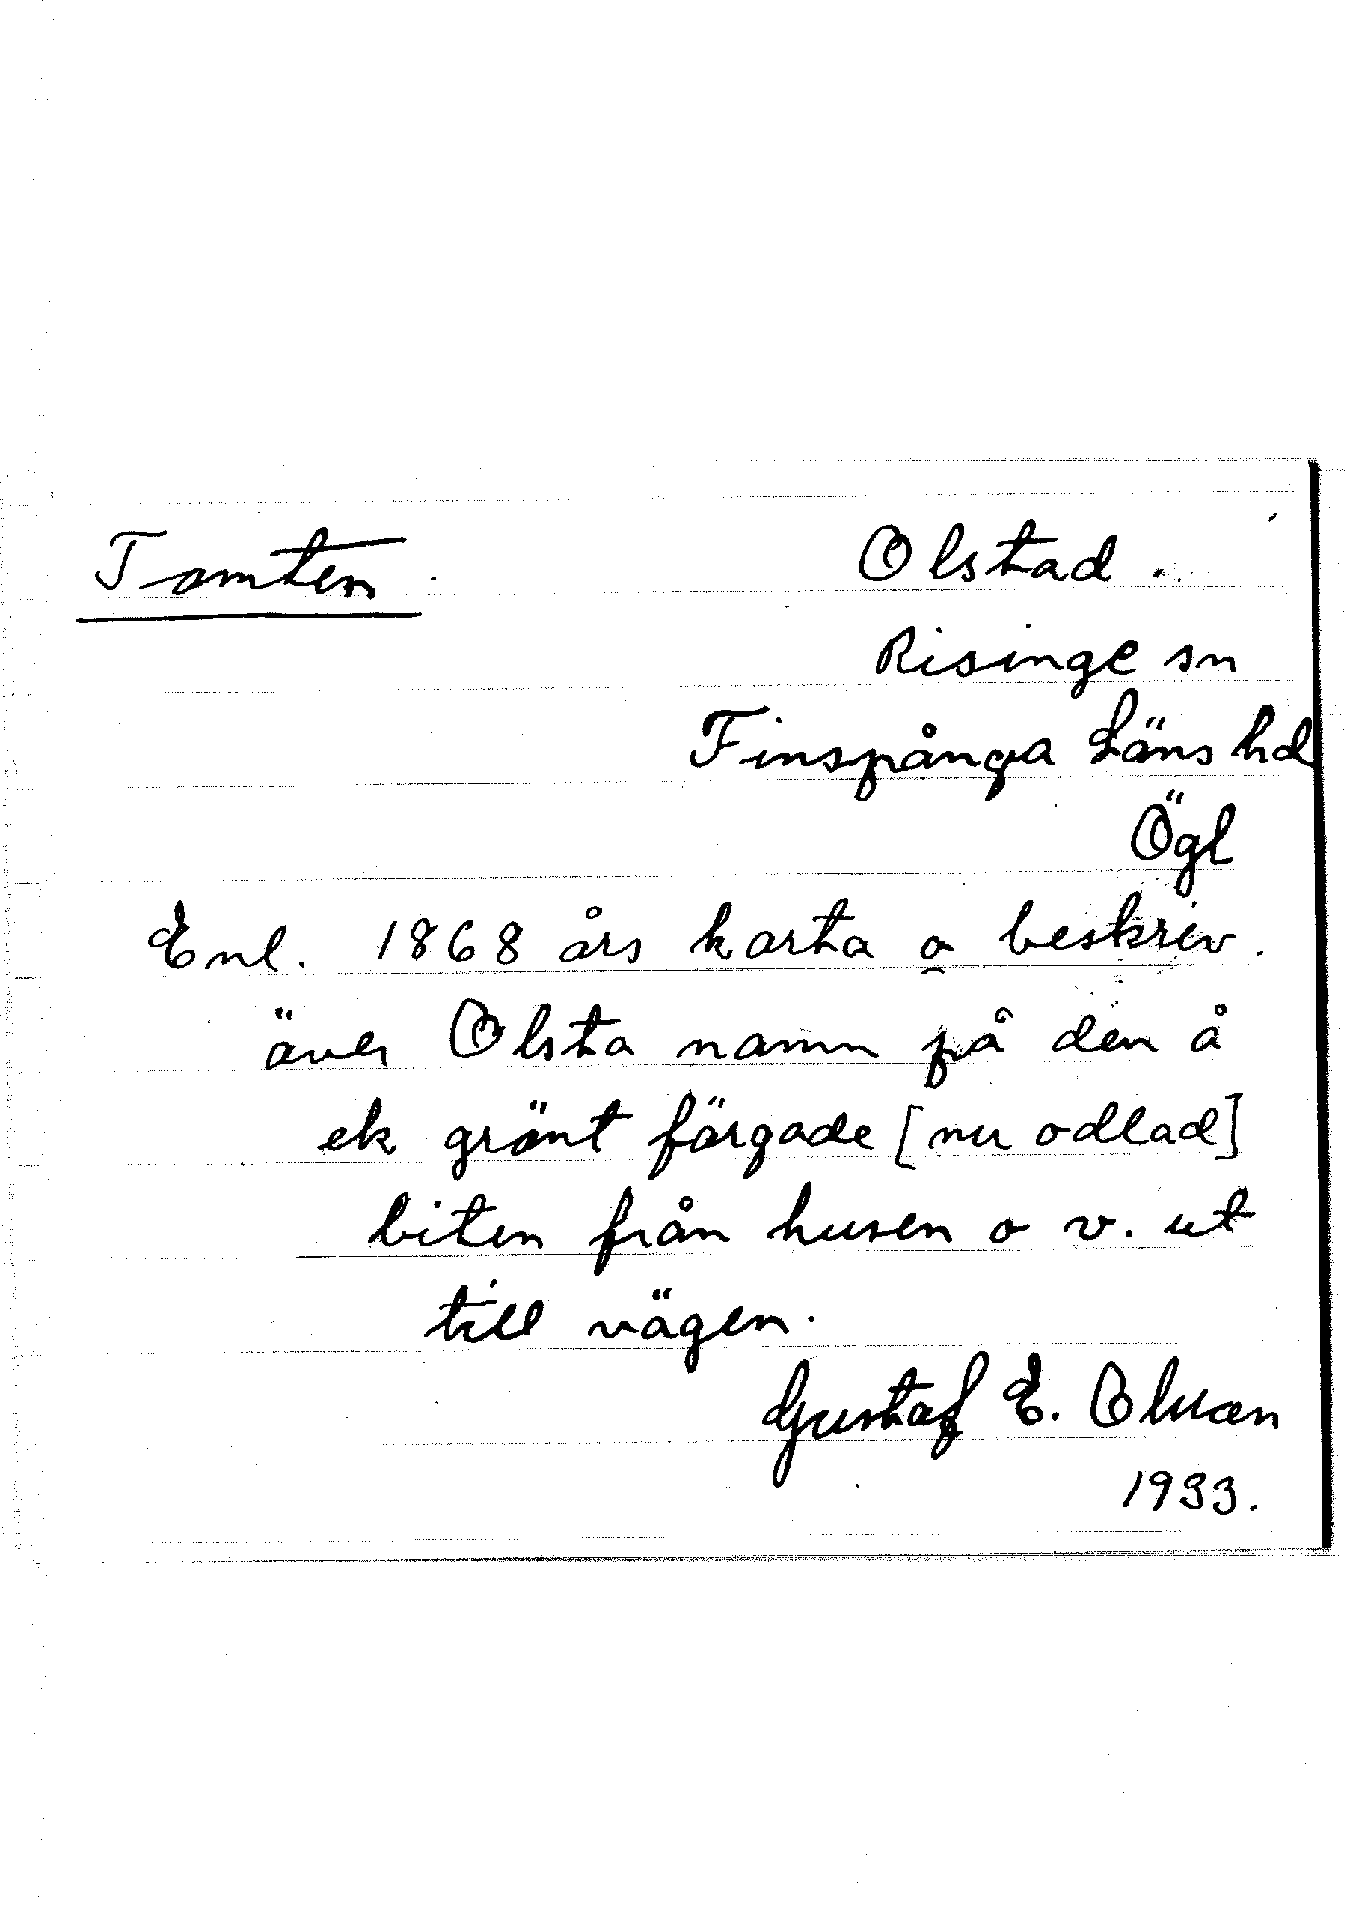 Tomten. Olstad.
Risinge sn
Finspånga Läns hd
Ögl
Enl. 1868 års karta o beskriv.
över Olsta namn på den å
ek grönt färgade [nu odlad]
biten från husen o v. ut
till vägen.
Gustaf E. Olsson
1933.